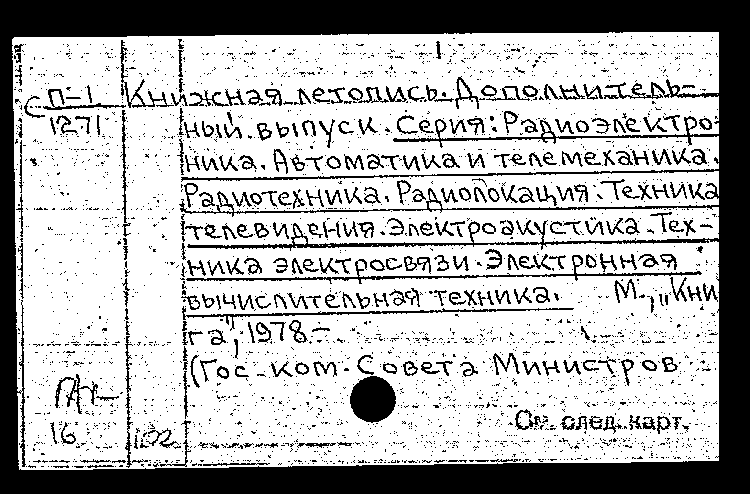 С П-1 Книжная летопись. Дополнитель-
1271 ный выпуск. Серия: Радиоэлектро-
ника. Автоматика и телемеханика.
Радиотехника. Радиолокация. Техника
телевидения. Электроакустика. Тех-
ника электросвязи. Электронная
вычислительная техника. М., „Кни
га", 1978-
(Гос. ком. Совета Министров
16
См. след. карт.